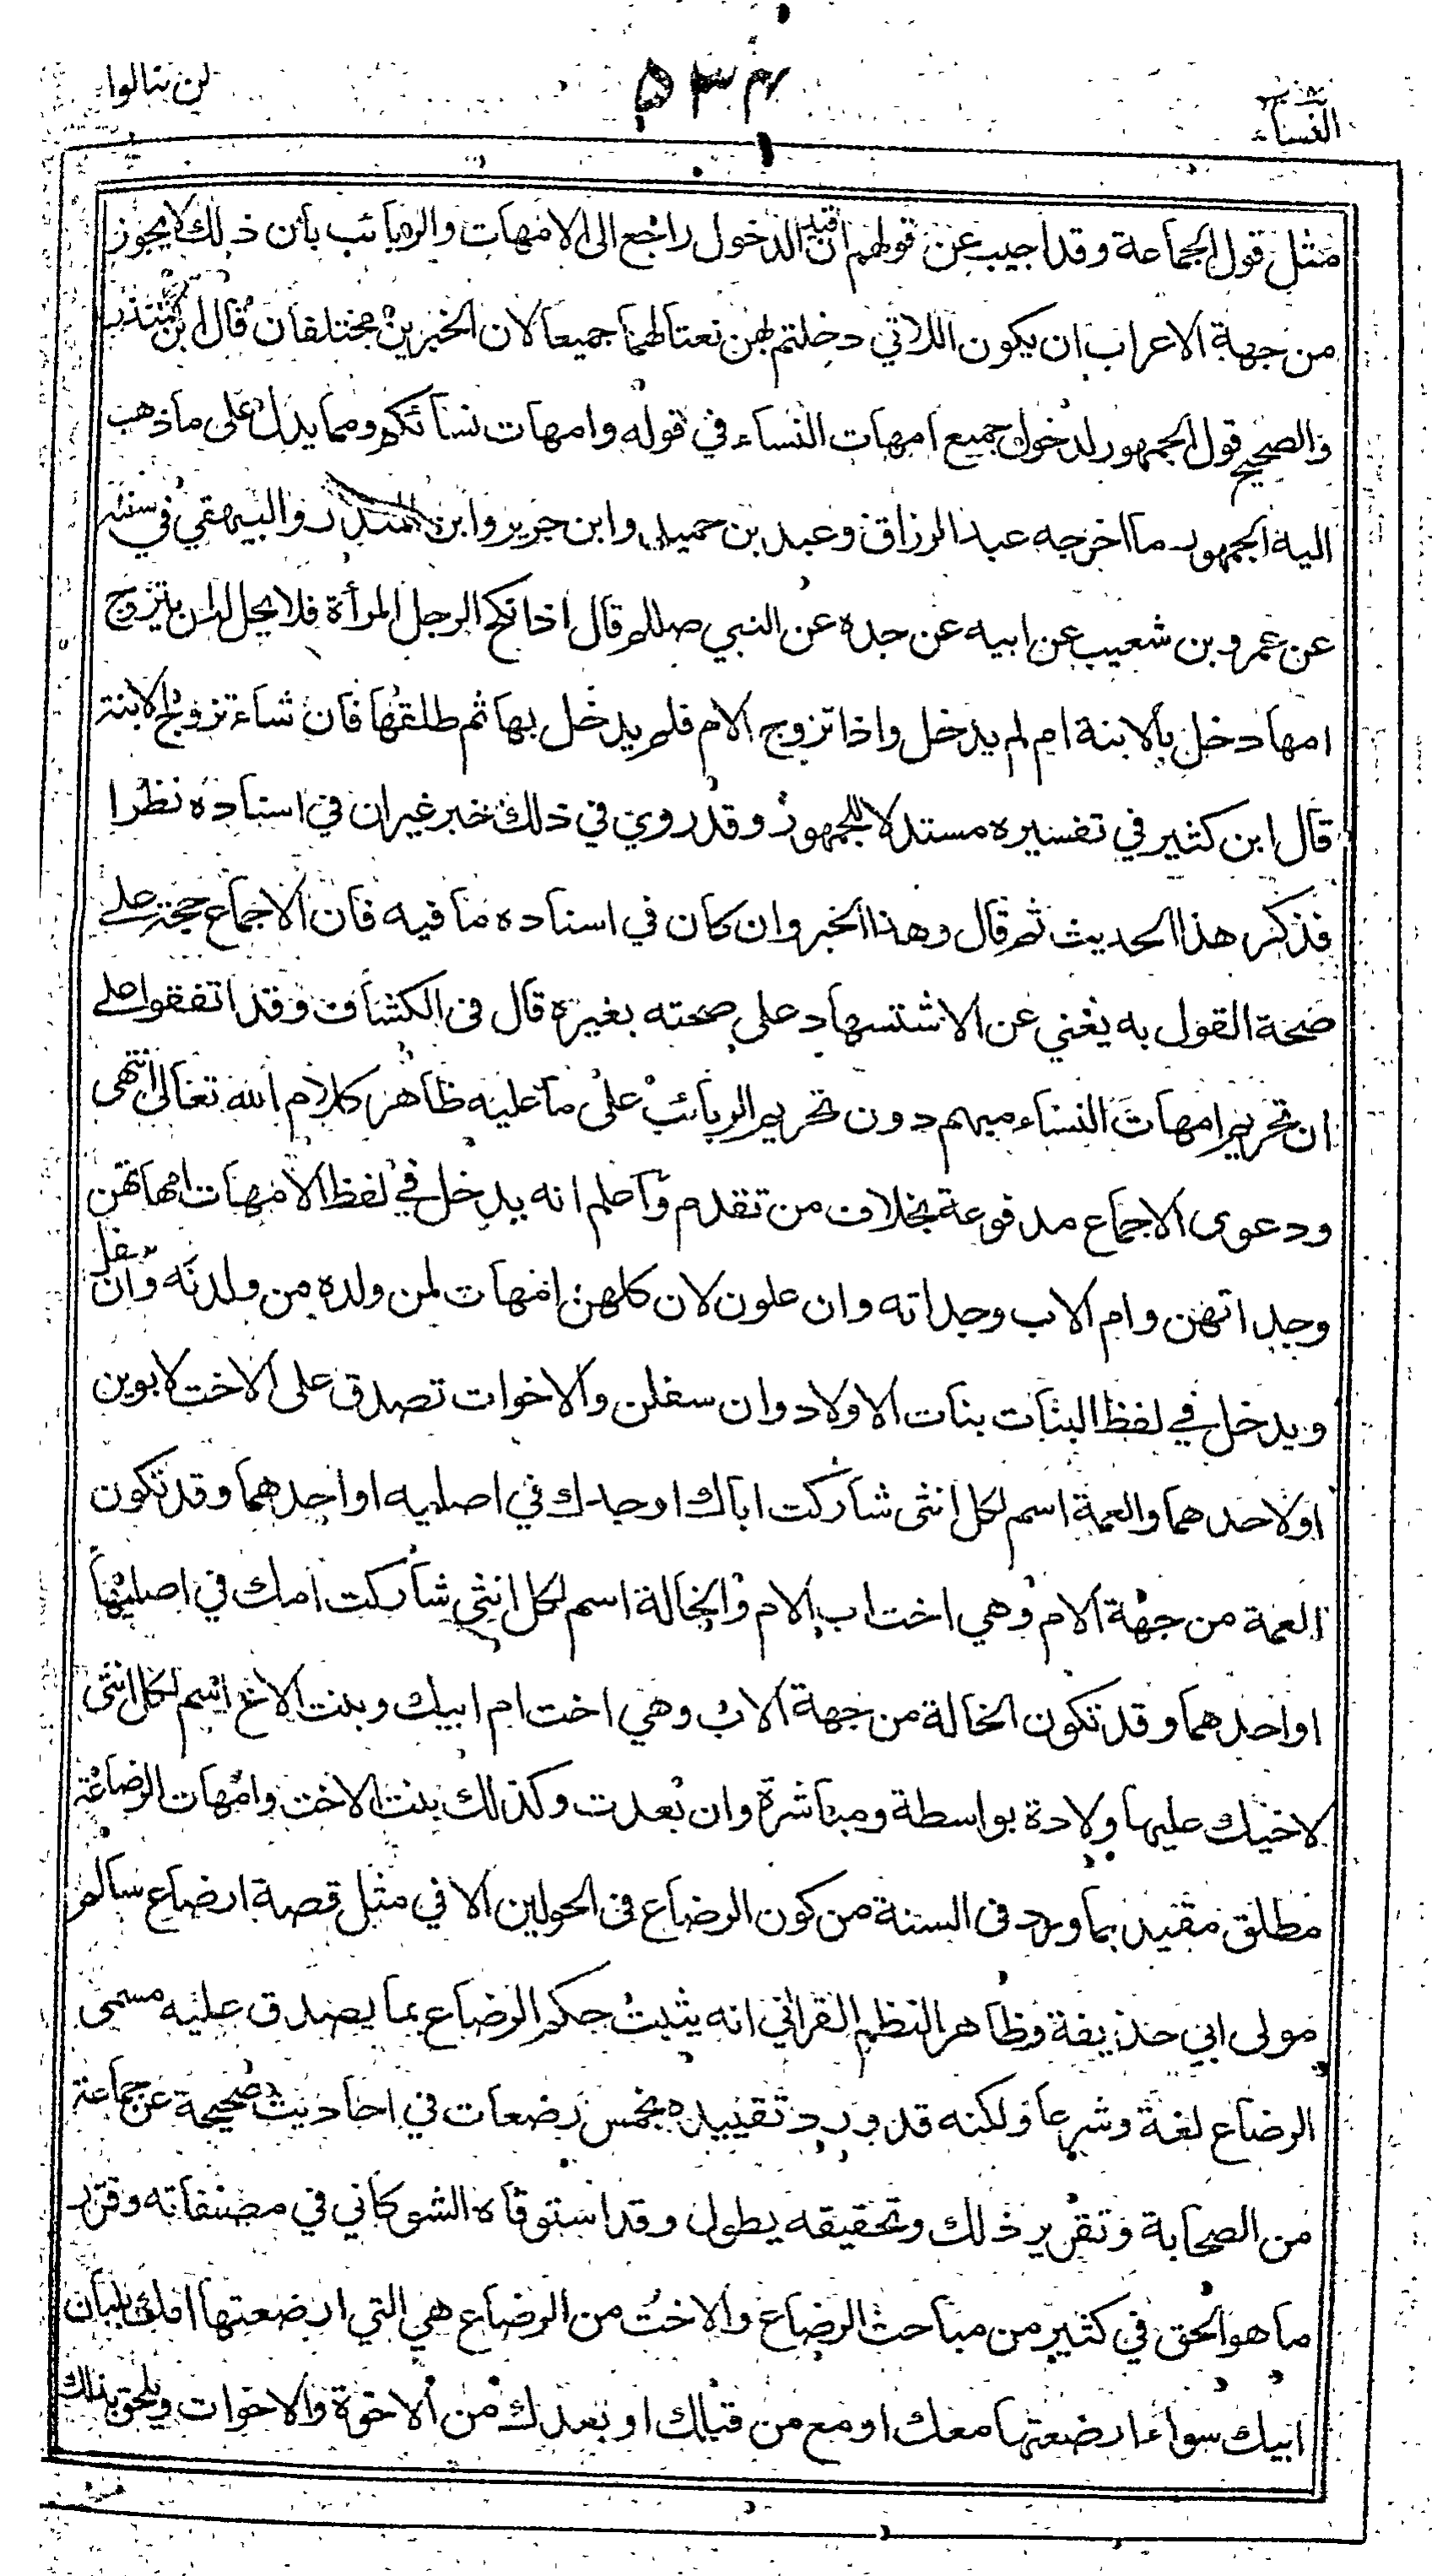 لن تنالوا
٥٣٣
النساء
مثل قول الجماعة وقد اجيب عن قولهم ان قيد الدخول راجع الى الامهات والربائب بأن ذلك لا يجوز
من جهة الاعراب ان يكون اللاتي دخلتم بهن نعتا لهما جميعا لان الخبرين مختلفان قال ابن المنذر
والصحيح قول الجمهور لدخول جميع امهات النساء في قوله وامهات نسائكم ومما يدل على ما ذهب
اليه الجمهور ما اخرجه عبد الرزاق وعبد بن حميد وابن جرير وابن المنذر والبيهقي في سننه
عن عمرو بن شعيب عن ابيه عن جده عن النبي صللم قال اذا نكح الرجل المرأة فلا يحل له ان يتزوج
امها دخل بالابنة ام لم يدخل واذا تزوج الام فلم يدخل بها ثم طلقها فان شاء تزوج الابنة
قال ابن كثير في تفسيره مستدلا للجمهور وقد روي في ذلك خبر غير ان في اسناده نظرا
فذكر هذا الحديث ثم قال وهذا الخبر وان كان في اسناده ما فيه فان الاجماع حجة على
صحة القول به يغني عن الاستشهاد على صحته بغيره قال في الكشاف وقد اتفقوا على
ان تحريم امهات النساء مبهم دون تحريم الربائب على ما عليه ظاهر كلام الله تعالى انتهى
ودعوى الاجماع مدفوعة بخلاف من تقدم واعلم انه يدخل في لفظ الامهات امهاتهن
وجداتهن وام الاب وجداته وان علون لان كلهن امهات لمن ولده من ولدته وان سفل
ويدخل في لفظ البنات بنات الاولاد وان سفلن والاخوات تصدق على الاخت لابوين
او لاحدهما والعمة اسم لكل انثى شاركت اباك او جدك في اصليه او احدهما وقد تكون
العمة من جهة الام وهي اخت اب الام والخالة اسم لكل انثى شاركت امك في اصليها
او احدهما وقد تكون الخالة من جهة الاب وهي اخت ام ابيك وبنت الاخ اسم لكل انثى
لاخيك عليها ولادة بواسطة ومباشرة وان بعدت وكذلك بنت الاخت وامهات الرضاعة
مطلق مقيد بما ورد في السنة من كون الرضاع في الحولين الا في مثل قصة ارضاع سالم
مولى ابي حذيفة وظاهر النظم القراني انه يثبت حكم الرضاع بما يصدق عليه مسمى
الرضاع لغة وشرعا ولكنه قد ورد تقييده بخمس رضعات في احاديث صحيحة عن جماعة
من الصحابة وتقرير ذلك وتحقيقه يطول وقد استوفاه الشوكاني في مصنفاته وقرر
ما هو الحق في كثير من مباحث الرضاع والاخت من الرضاع هي التي ارضعتها امك بلبان
ابيك سواء ارضعتها معك او مع من قبلك او بعدك من الاخوة والاخوات ويلحق بذلك